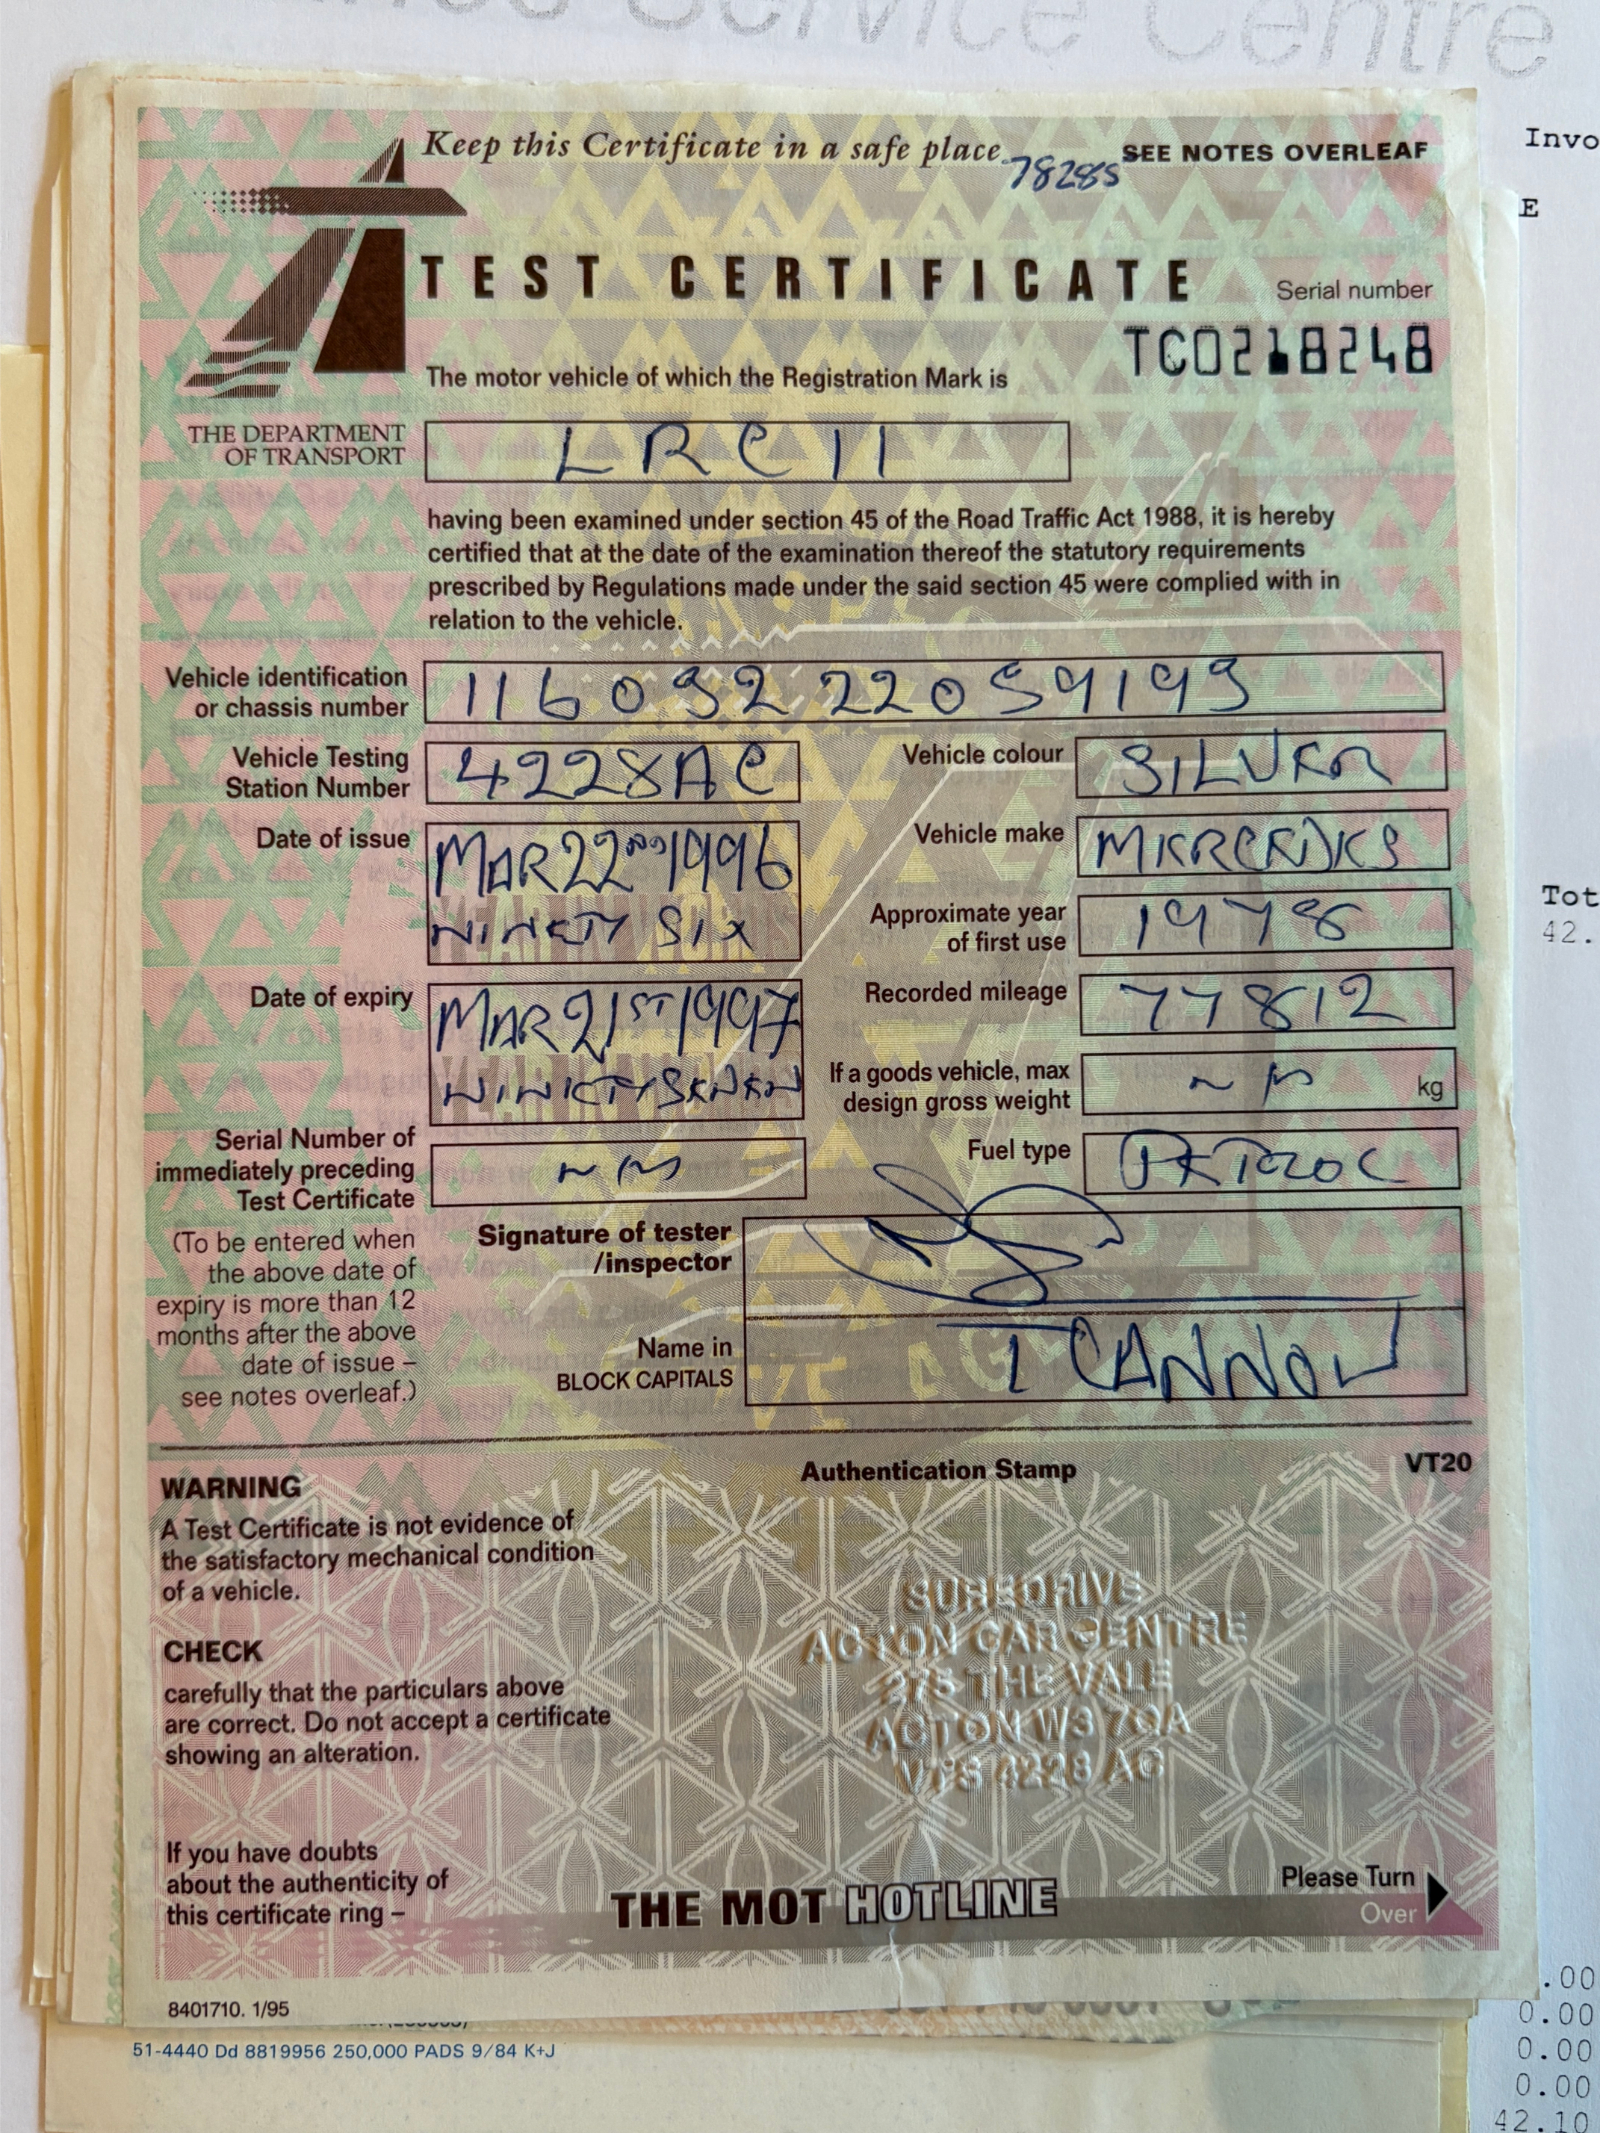 Service Centre
Invo
E
Keep this Certificate in a safe place
78285
SEE NOTES OVERLEAF
TEST CERTIFICATE
Serial number
TC0218248
The motor vehicle of which the Registration Mark is
THE DEPARTMENT
OF TRANSPORT
LRC 11
having been examined under section 45 of the Road Traffic Act 1988, it is hereby
certified that at the date of the examination thereof the statutory requirements
prescribed by Regulations made under the said section 45 were complied with in
relation to the vehicle.
Vehicle identification
or chassis number
116032 22059193
Vehicle Testing
Station Number
4228AC
Vehicle colour
SILVER
Date of issue
MAR 22ND 1996
NINETY SIX
Vehicle make
MERCEDES
Approximate year
of first use
1978
Date of expiry
MAR 21ST 1997
NINETY SEVEN
Recorded mileage
77812
If a goods vehicle, max
design gross weight
kg
Serial Number of
immediately preceding
Test Certificate
Fuel type
PETROL
(To be entered when
the above date of
expiry is more than 12
months after the above
date of issue –
see notes overleaf.)
Signature of tester
/inspector
Name in
BLOCK CAPITALS
T CANNON
WARNING
A Test Certificate is not evidence of
the satisfactory mechanical condition
of a vehicle.
Authentication Stamp
VT20
CHECK
carefully that the particulars above
are correct. Do not accept a certificate
showing an alteration.
SUREDRIVE
ACTON CAR CENTRE
275 THE VALE
ACTON W3 7QA
VTS 4228 AC
If you have doubts
about the authenticity of
this certificate ring –
THE MOT HOTLINE
Please Turn
Over
8401710. 1/95
51-4440 Dd 8819956 250,000 PADS 9/84 K+J
Tot
42.
.00
0.00
0.00
0.00
42.10